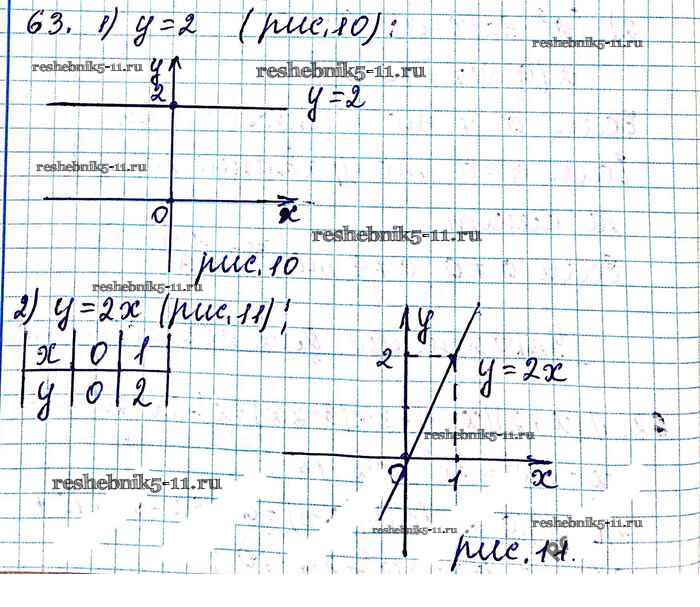 63. 1) y=2 (рис.10):
reshebnik5-11.ru
reshebnik5-11.ru
reshebnik5-11.ru
y
2
y=2
reshebnik5-11.ru
0
x
reshebnik5-11.ru
рис.10
reshebnik5-11.ru
2) y=2x (рис.11);
x 0 1
y 0 2
y
2
y=2x
reshebnik5-11.ru
0
1
x
reshebnik5-11.ru
reshebnik5-11.ru
reshebnik5-11.ru
рис.11.